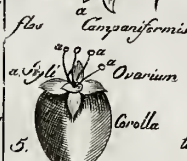 a
flos Campaniformis
a a
a a
a. styli Ovarium
Corolla
5.